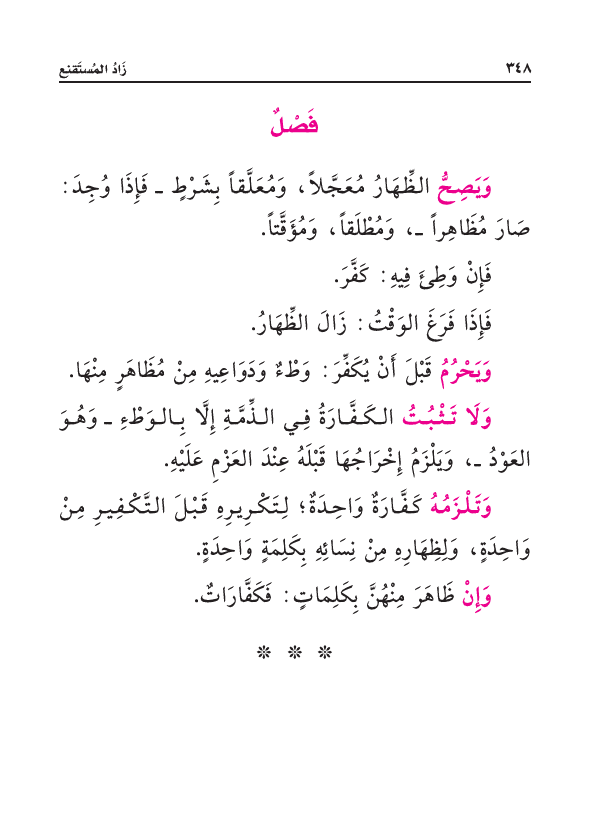 ٣٤٨ زَادُ المُسْتَقْنِعِ
فَصْلٌ
وَيَصِحُّ الظِّهَارُ مُعَجَّلاً، وَمُعَلَّقاً بِشَرْطٍ ـ فَإِذَا وُجِدَ:
صَارَ مُظَاهِراً ـ، وَمُطْلَقاً، وَمُؤَقَّتاً.
فَإِنْ وَطِئَ فِيهِ: كَفَّرَ.
فَإِذَا فَرَغَ الوَقْتُ: زَالَ الظِّهَارُ.
وَيَحْرُمُ قَبْلَ أَنْ يُكَفِّرَ: وَطْءٌ وَدَوَاعِيهِ مِنْ مُظَاهَرٍ مِنْهَا.
وَلَا تَثْبُتُ الكَفَّارَةُ فِي الذِّمَّةِ إِلَّا بِالوَطْءِ ـ وَهُوَ
العَوْدُ ـ، وَيَلْزَمُ إِخْرَاجُهَا قَبْلَهُ عِنْدَ العَزْمِ عَلَيْهِ.
وَتَلْزَمُهُ كَفَّارَةٌ وَاحِدَةٌ؛ لِتَكْرِيرِهِ قَبْلَ التَّكْفِيرِ مِنْ
وَاحِدَةٍ، وَلِظِهَارِهِ مِنْ نِسَائِهِ بِكَلِمَةٍ وَاحِدَةٍ.
وَإِنْ ظَاهَرَ مِنْهُنَّ بِكَلِمَاتٍ: فَكَفَّارَاتٌ.
❊ ❊ ❊